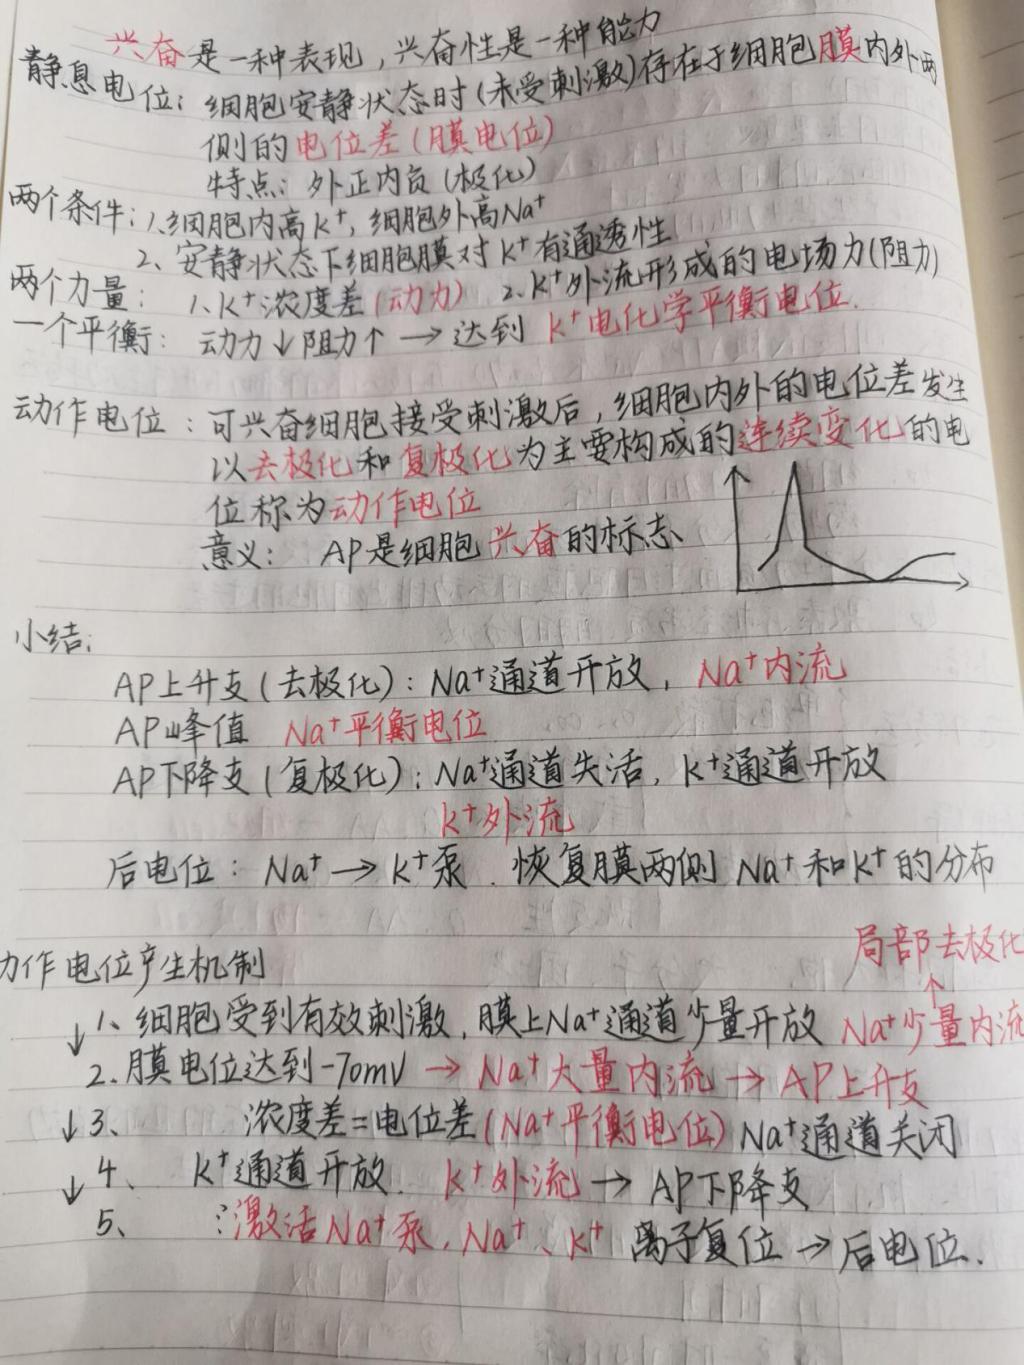 兴奋是一种表现，兴奋性是一种能力
静息电位：细胞安静状态时(未受刺激)存在于细胞膜内外两
侧的电位差(膜电位)
特点：外正内负(极化)
两个条件：1.细胞内高K⁺，细胞外高Na⁺
2、安静状态下细胞膜对K⁺有通透性
两个力量：1、K⁺浓度差(动力) 2.K⁺外流形成的电场力(阻力)
一个平衡：动力↓阻力↑→达到 K⁺电化学平衡电位.
动作电位：可兴奋细胞接受刺激后，细胞内外的电位差发生
以去极化和复极化为主要构成的连续变化的电
位称为动作电位
意义：AP是细胞兴奋的标志
小结：
AP上升支(去极化)：Na⁺通道开放，Na⁺内流
AP峰值 Na⁺平衡电位
AP下降支(复极化)：Na⁺通道失活，K⁺通道开放
K⁺外流
后电位：Na⁺→K⁺泵.恢复膜两侧Na⁺和K⁺的分布
动作电位产生机制
局部去极化
↑
↓1、细胞受到有效刺激，膜上Na⁺通道少量开放 Na⁺少量内流
2.膜电位达到-70mV→Na⁺大量内流→AP上升支
↓3、 浓度差=电位差(Na⁺平衡电位)Na⁺通道关闭
↓4、 K⁺通道开放. K⁺外流→AP下降支
5、 激活Na⁺泵，Na⁺、K⁺离子复位→后电位.